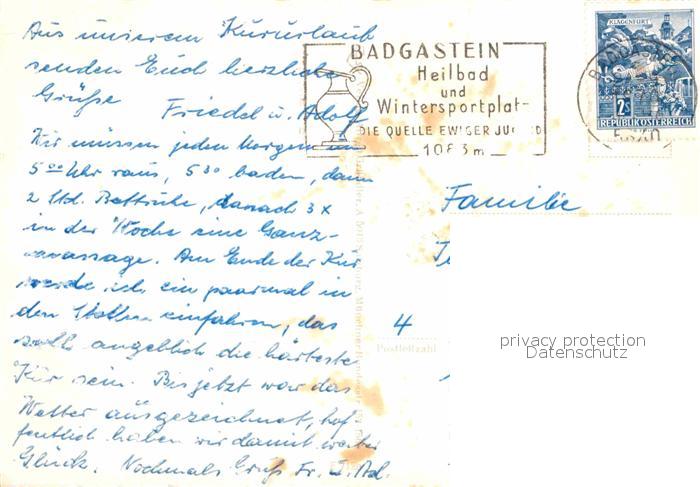 Aus unserem Kururlaub
senden Euch herzliche
Grüße Friedel u. Adolf
Wir müssen jeden Morgen um
5 00 Uhr raus, 5 30 baden, dann
2 Std. Bettruhe, danach 3 x
in der Woche eine Ganz-
massage. Am Ende der Kur
werde ich ein paarmal in
den Stollen einfahren, das
soll angeblich die härteste
Kur sein. Bis jetzt war das
Wetter ausgezeichnet, hof
fentlich haben wir damit weiter
Glück. Nochmals Gruß Fr. u. Ad.
BADGASTEIN
Heilbad
und
Wintersportplatz
DIE QUELLE EWIGER JUGEND
1083 m
KLAGENFURT
2S
REPUBLIK ÖSTERREICH
BADGASTEIN
Familie
4
Postleitzahl
privacy protection
Datenschutz